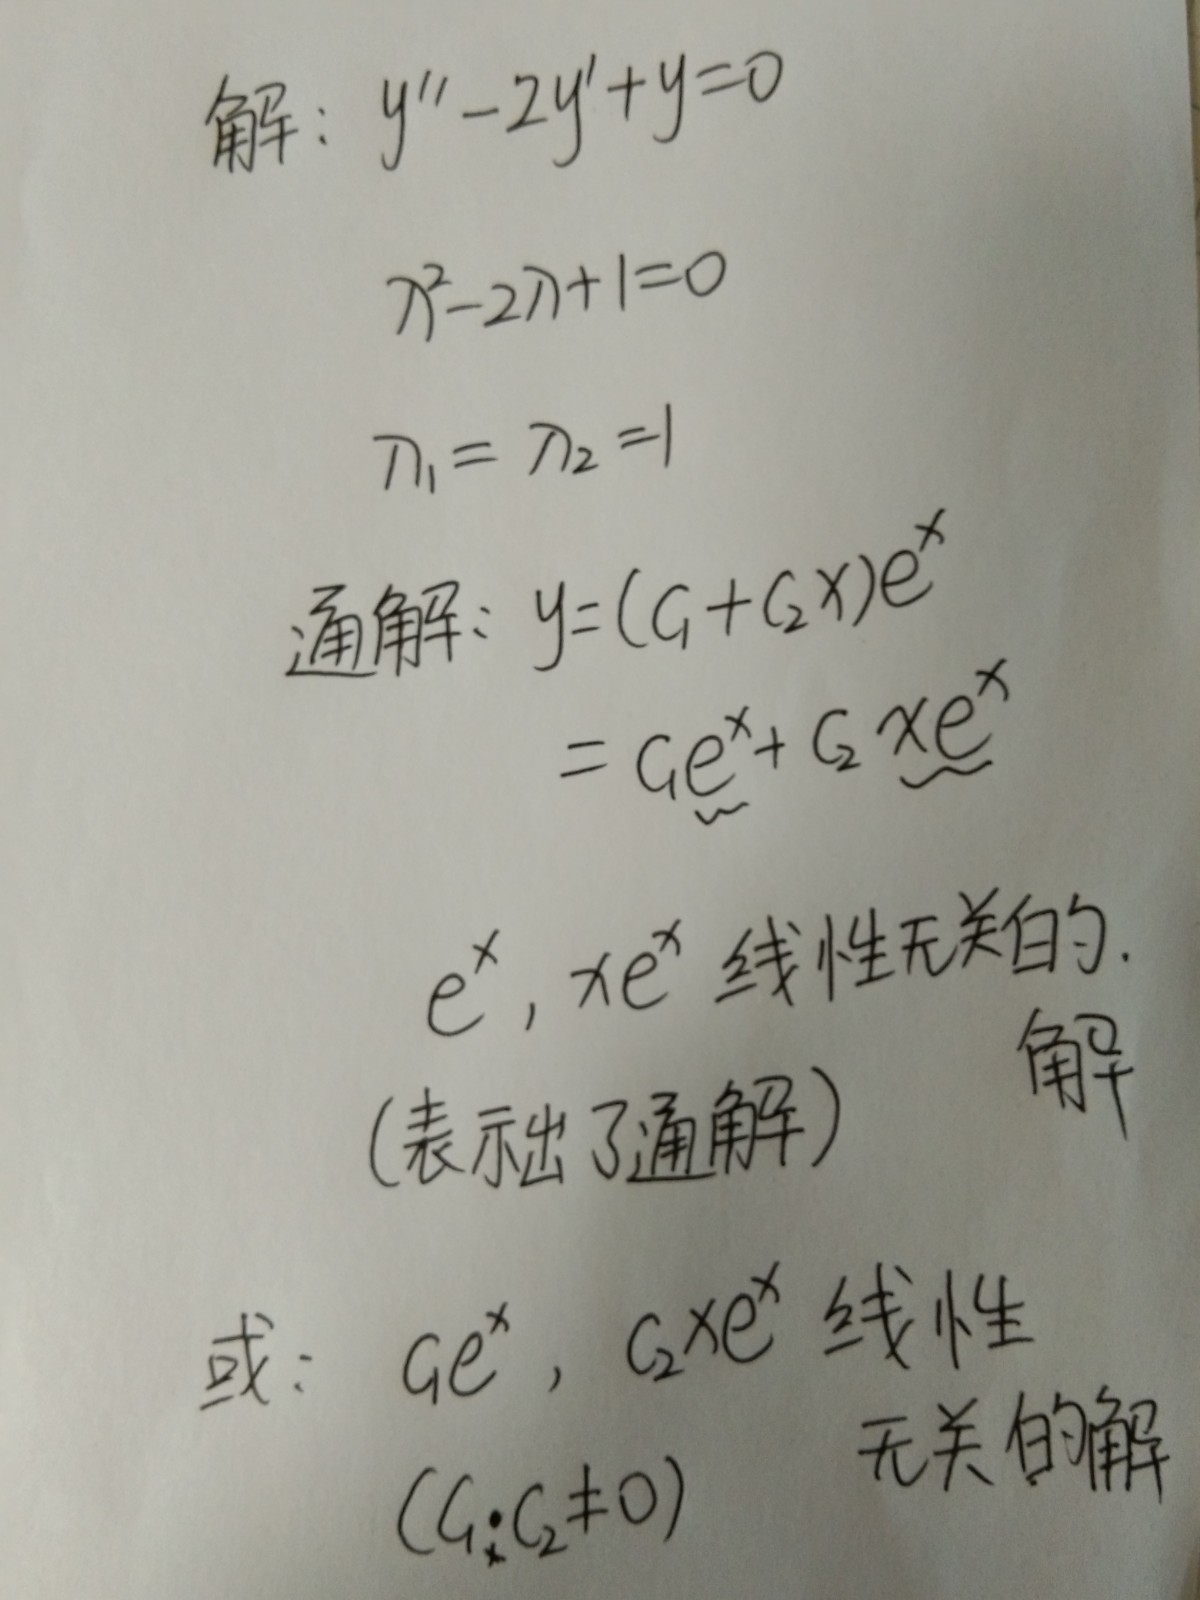 解: y''-2y'+y=0
λ²-2λ+1=0
λ₁=λ₂=1
通解: y=(C₁+C₂x)eˣ
=C₁eˣ+C₂xeˣ
eˣ, xeˣ 线性无关的.
解
(表示出了通解)
或: C₁eˣ, C₂xeˣ 线性
无关的解
(C₁·C₂≠0)